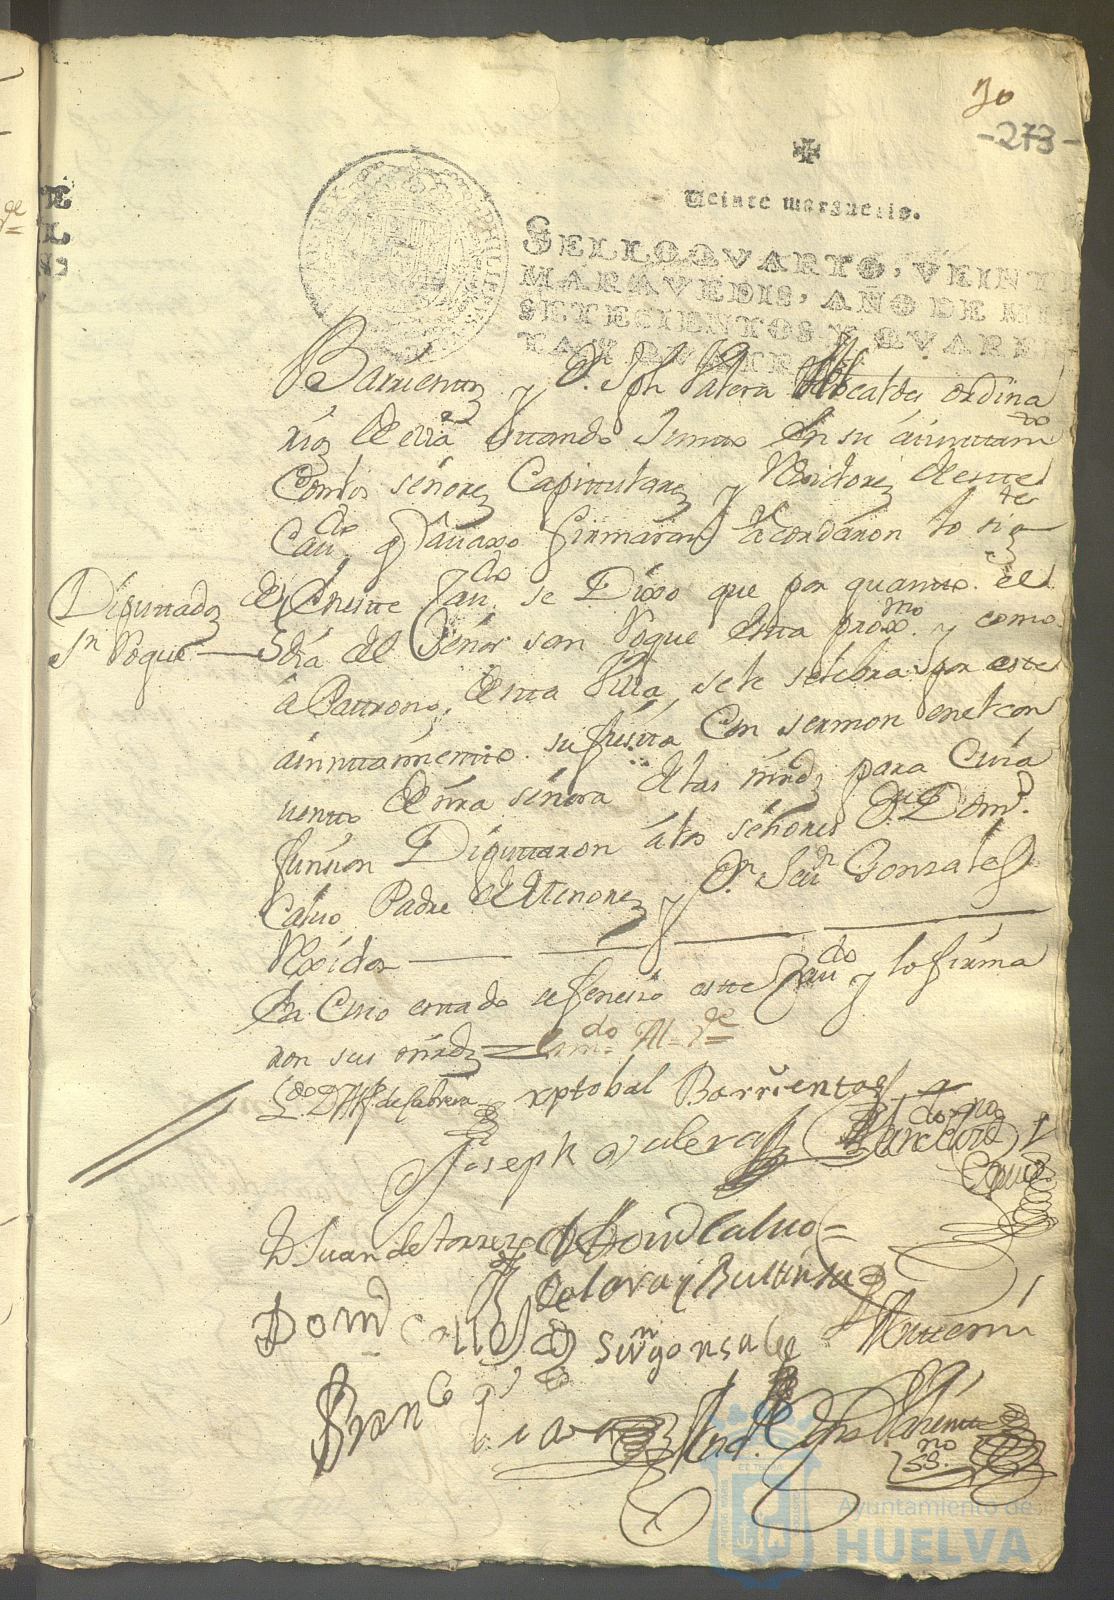 30
-273-
Veinte marauedis.
SELLO QVARTO, VEINTE
MARAVEDIS, AÑO DE MIL
SETECIENTOS Y QVAREN
TA Y QVATRO
Barrientos y Dn. Jph Valera Alcaldes ordina
rios de esta vª estando Juntos En su aiuntamto
Con los señores Capitulares y Rexidores de este
Caudo q auaxo firmaran acordaron lo sigte
Diputados de Sn Roque
En este Caudo se Dixo que por quanto el
dia del Señor san Roque esta proxmo. y como
a Pattrono, de esta Villa, se le selebra por este
aiuntamiento su fiesta Con sermon en el con
uento de nra señora de las mrds para Cuia
funsion Diputaron a los señores Dn. Domo.
Caluo Padre de Menores y Dn. Sevn Gonzales
Rexidor
En Cuio estado se fenesio este Caudo y lo firma
ron sus mrds = Enmdo
Ldo D de Cabrera
xptobal Barrientos
Joseph Valera
D Juan de torres
Domo Caluo
de Lara y
Domo
Sevn gonsales
Franco
Ante mi
ssno
Ayuntamiento de
HUELVA